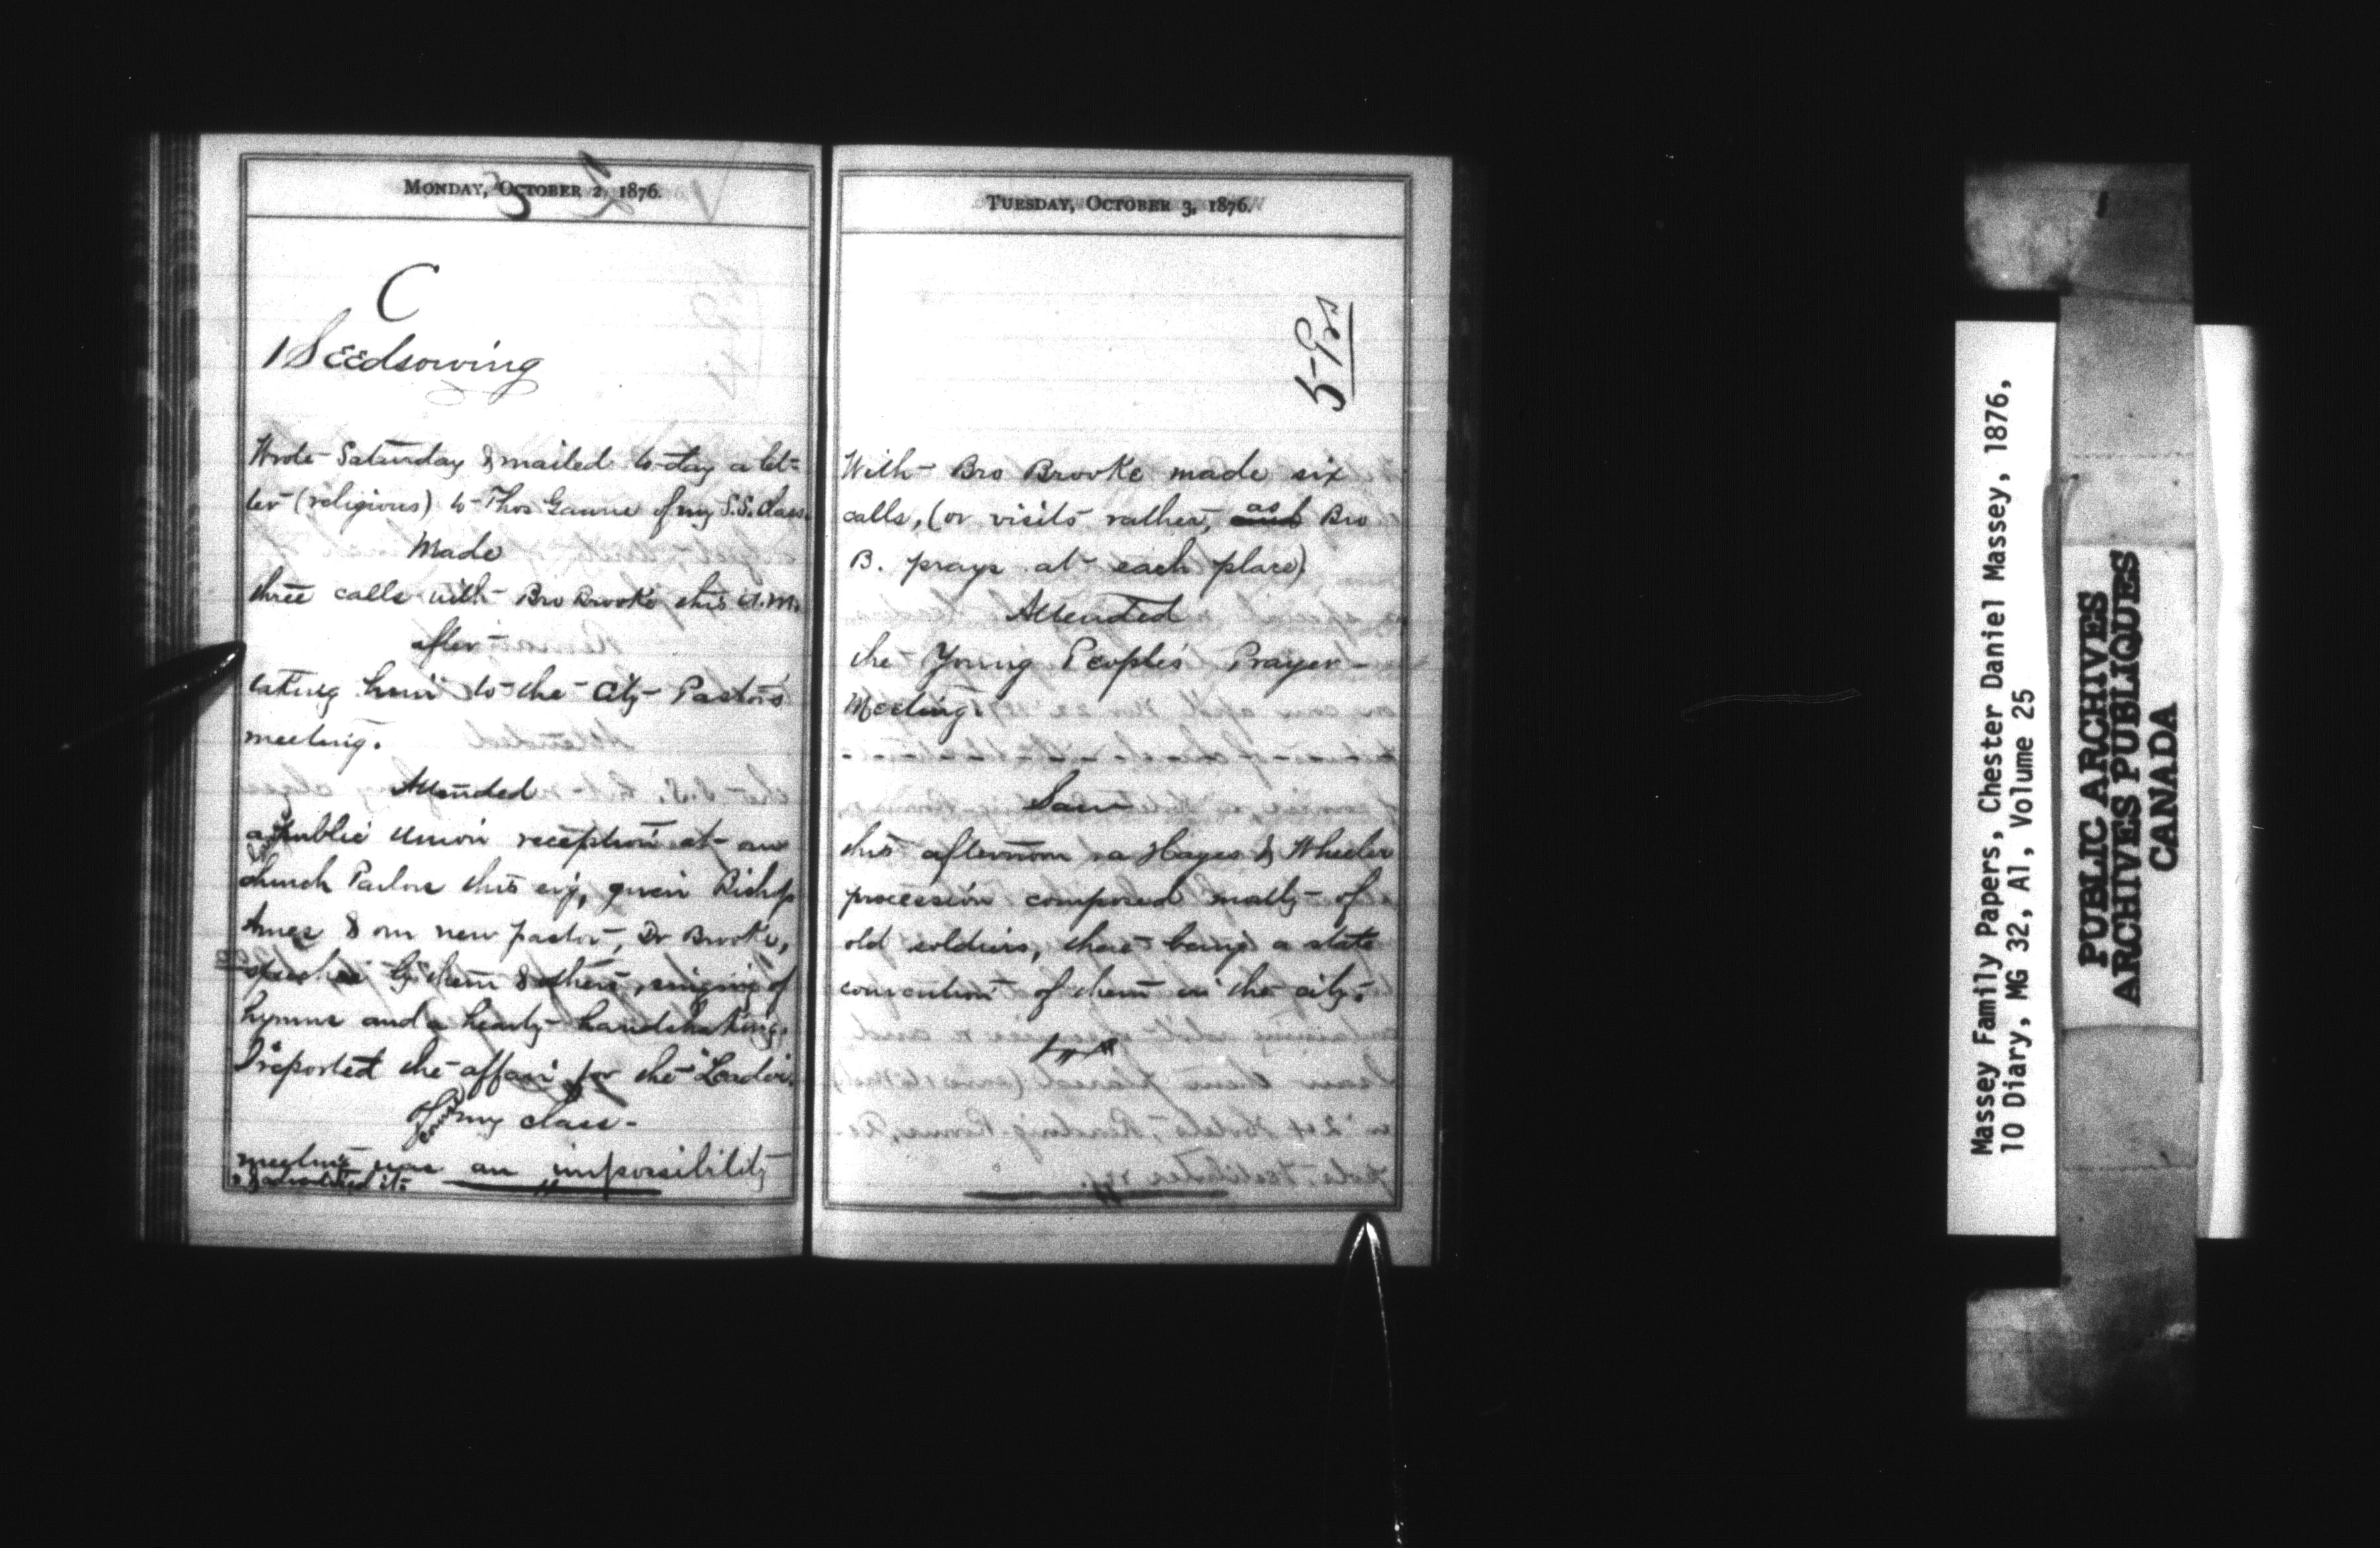 MONDAY, OCTOBER 2, 1876.
C
1 SEEdsowing
Wrote Saturday & mailed to-day a let-
ter (religious) to Thos of my S.S. class.
Made
three calls with Bro Brooke this A.M.
after
taking him to the City Pastor's
meeting.
Attended
a public union reception at our
church Parlors this ev'g, given Bishop
Ames & our new pastor, Dr Brooke,
speeches by them & others, singing of
hymns and a hearty handshaking.
I reported the affair for the Leader.
Of my class-
meeting was an impossibility
TUESDAY, OCTOBER 3, 1876.
With Bro Brooke made six
calls, (or visits rather, as Bro
B. prays at each place)
Attended
the Young People's Prayer-
Meeting.
Saw
this afternoon a Hayes & Wheeler
procession composed mostly of
old soldiers, there being a state
convention of them in the city.
Massey Family Papers, Chester Daniel Massey, 1876,
10 Diary, MG 32, A1, Volume 25
PUBLIC ARCHIVES
ARCHIVES PUBLIQUES
CANADA